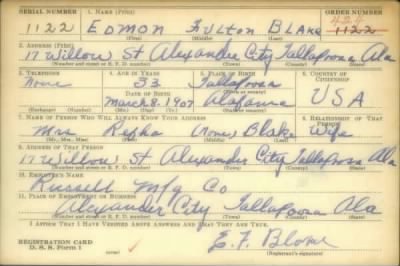 SERIAL NUMBER 1. NAME (Print) ORDER NUMBER
1122 EDMON FULTON BLAKE 1122
2. ADDRESS (Print)
17 Willow St Alexander City Tallapoosa Ala
(Number and street or R. F. D. number) (Town) (County) (State)
3. TELEPHONE 4. AGE IN YEARS 5. PLACE OF BIRTH 6. COUNTRY OF CITIZENSHIP
None 33 Tallapoosa
DATE OF BIRTH (Town or county)
March 8, 1907 Alabama USA
(Exchange) (Number) (Mo.) (Day) (Yr.) (State or country)
7. NAME OF PERSON WHO WILL ALWAYS KNOW YOUR ADDRESS 8. RELATIONSHIP OF THAT PERSON
Mrs Blake Wife
(Mr., Mrs., Miss) (First) (Middle) (Last)
9. ADDRESS OF THAT PERSON
17 Willow St Alexander City Tallapoosa Ala
(Number and street or R. F. D. number) (Town) (County) (State)
10. EMPLOYER'S NAME
Russell Mfg Co
11. PLACE OF EMPLOYMENT OR BUSINESS
Alexander City Tallapoosa Ala
(Number and street or R. F. D. number) (Town) (County) (State)
I AFFIRM THAT I HAVE VERIFIED ABOVE ANSWERS AND THAT THEY ARE TRUE.
REGISTRATION CARD
D. S. S. Form 1 (over) E. F. Blake
(Registrant's signature)